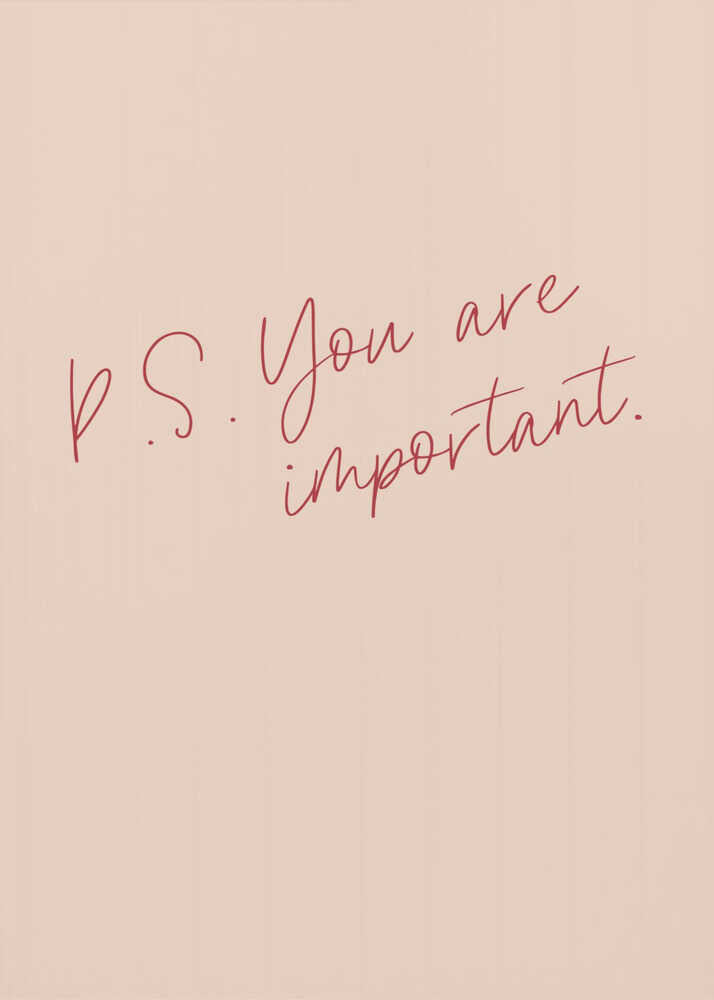 P.S. You are
important.